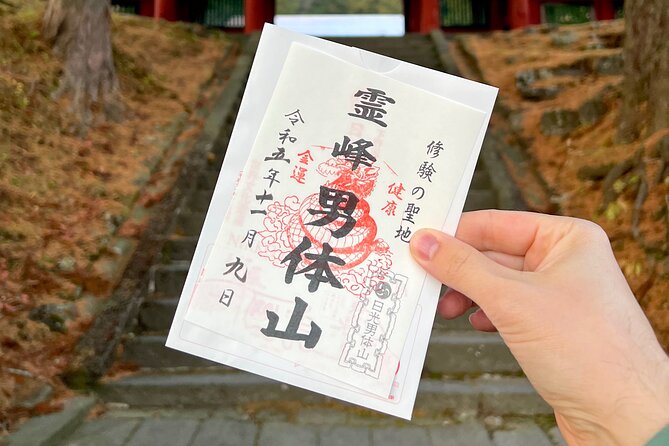 修験の聖地
霊峰男体山
健康
金運
日光男体山
令和五年十一月九日